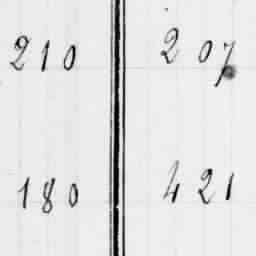 210 207
180 421